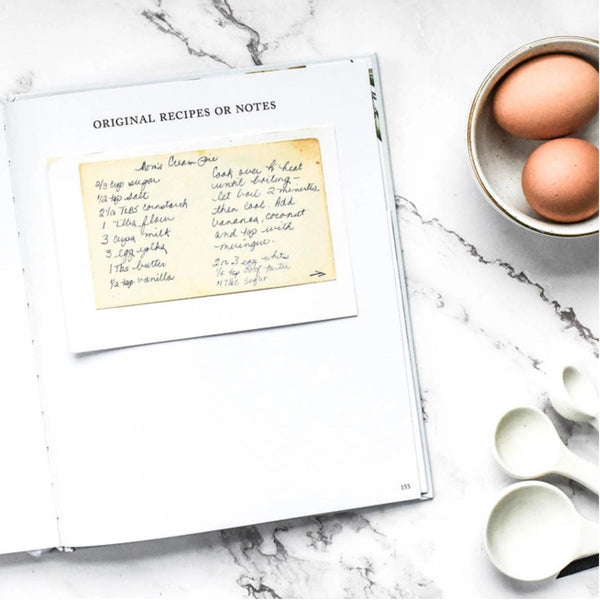 ORIGINAL RECIPES OR NOTES
Mom's Cream Pie
2/3 cup sugar
1/2 tsp salt
2 1/2 TLBS cornstarch
1 Tlbs flour
3 cups milk
3 egg yolks
1 Tbs butter
1/2 tsp vanilla
Cook over heat
until boiling -
let boil 2 minutes,
then cool. Add
bananas, coconut
and top with
meringue.
2 or 3 egg white
1/4 tsp tarter
4 Tbs sugar
155